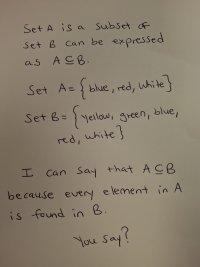 Set A is a subset of
set B can be expressed
as A ⊆ B.
Set A = {blue, red, white}
Set B = {yellow, green, blue,
red, white}
I can say that A ⊆ B
because every element in A
is found in B.
You say?